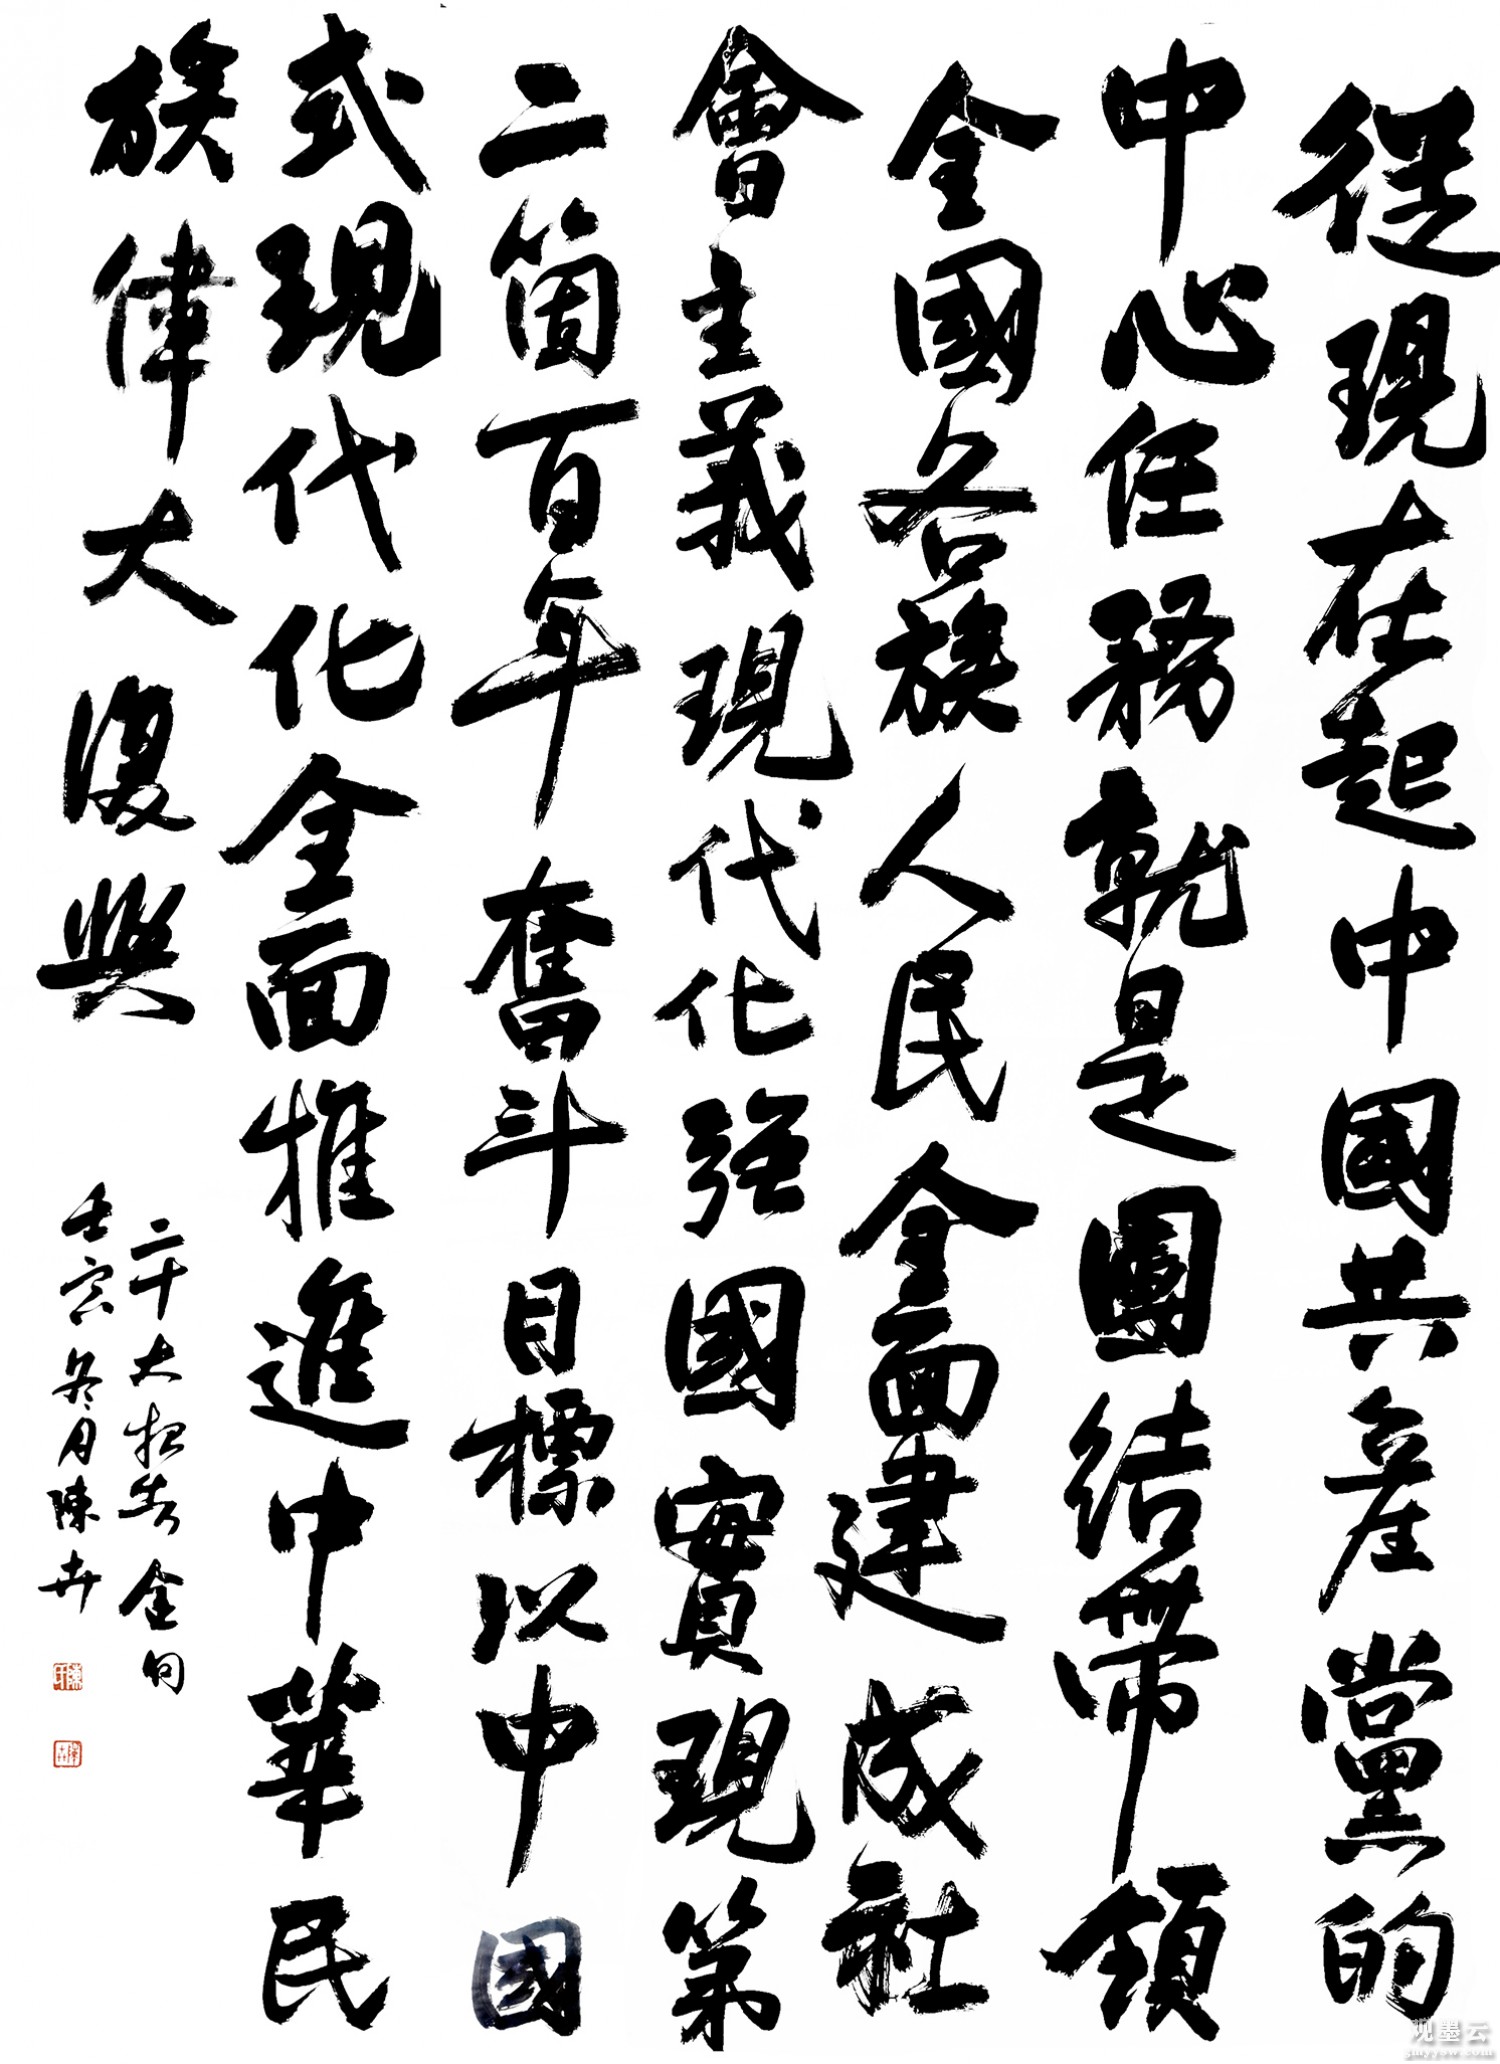 從現在起中國共產黨的
中心任務就是團結帶領
全國各族人民全面建成社
會主義現代化强國實現第
二箇百年奮斗目標以中國
式現代化全面推進中華民
族偉大復興
二十大報告金句
壬寅冬月陳卉
观墨云
gmyyow.com